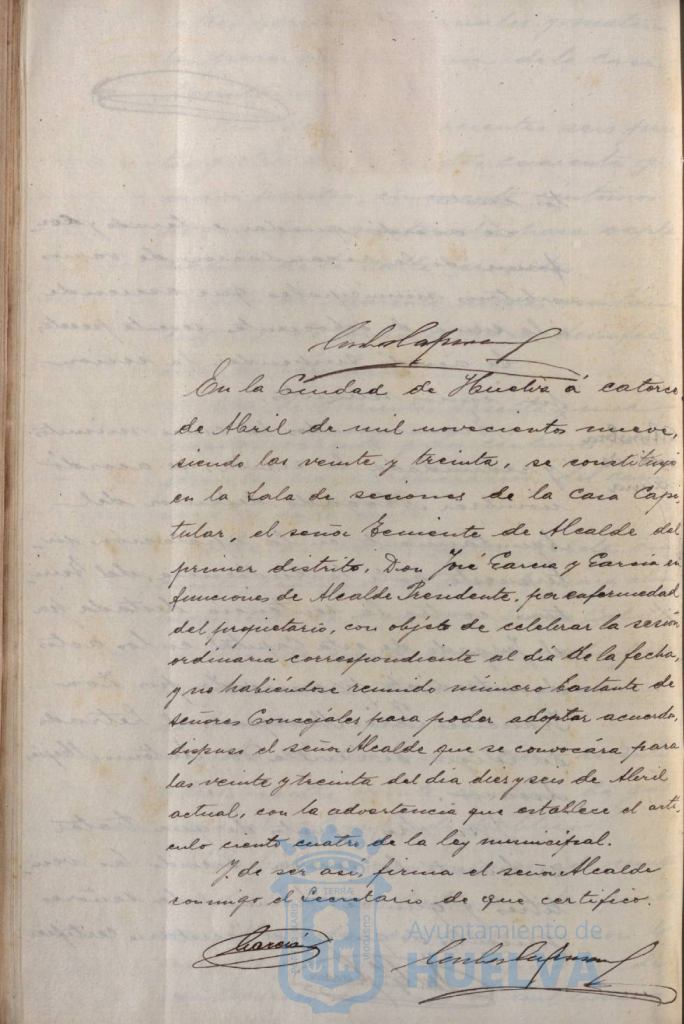 En la Ciudad de Huelva á catorce
de Abril de mil novecientos nueve,
siendo las veinte y treinta, se constituyó
en la Sala de sesiones de la Casa Capi-
tular, el señor Teniente de Alcalde del
primer distrito, Don José Garcia y Garcia en
funciones de Alcalde Presidente, por enfermedad
del propietario, con objeto de celebrar la sesión
ordinaria correspondiente al dia de la fecha,
y no habiéndose reunido número bastante de
señores Concejales para poder adoptar acuerdo,
dispuso el señor Alcalde que se convocára para
las veinte y treinta del dia diez y seis de Abril
actual, con la advertencia que establece el artí-
culo ciento cuatro de la ley municipal.
Y de ser así, firma el señor Alcalde
conmigo el Secretario de que certifico.
Garcia
Ayuntamiento de
HUELVA